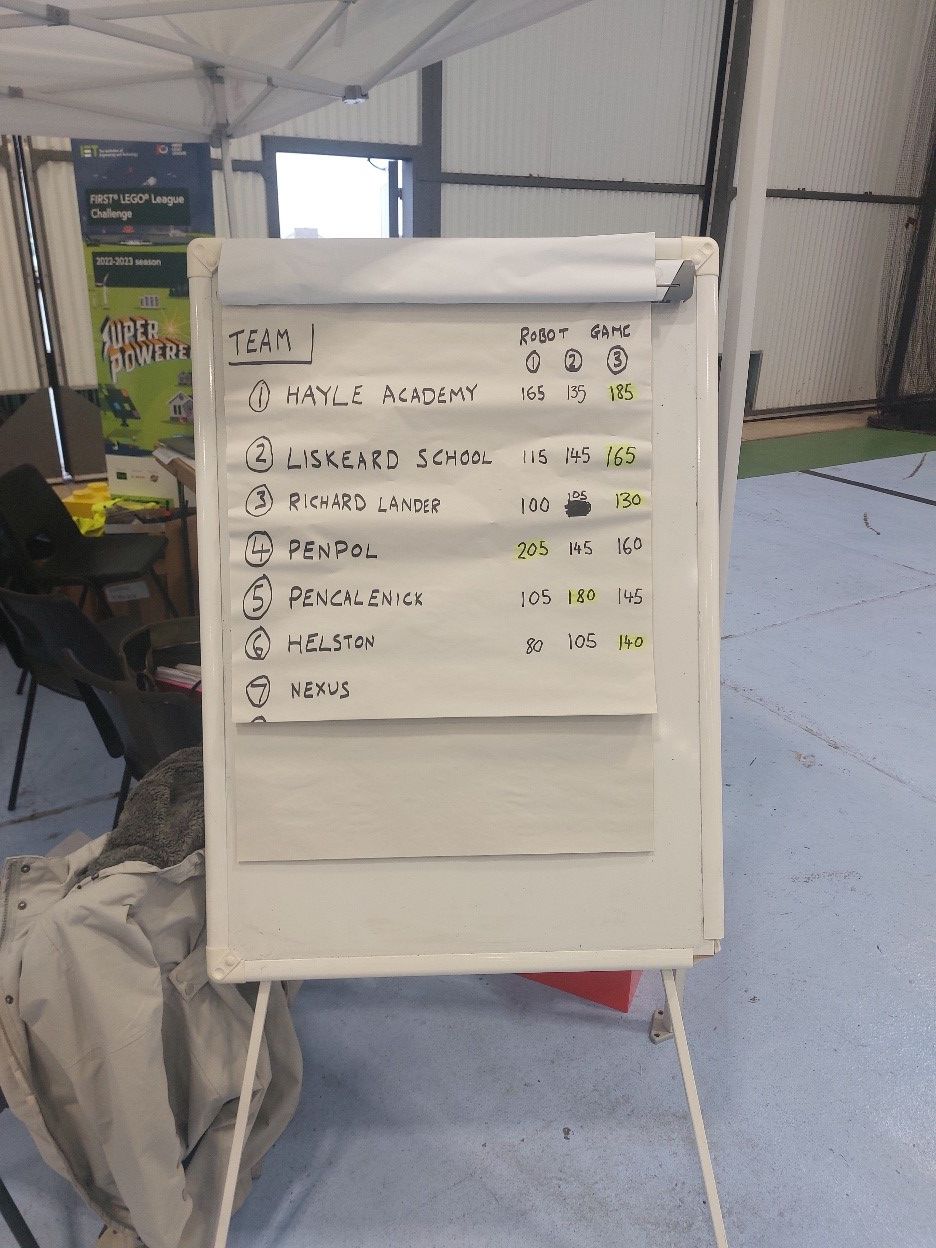 IET The Institution of Engineering and Technology
FIRST® LEGO® League
Challenge
2022-2023 season
SUPER
POWERE
TEAM
ROBOT GAME
① ② ③
① HAYLE ACADEMY 165 135 185
② LISKEARD SCHOOL 115 145 165
③ RICHARD LANDER 100 105 130
④ PENPOL 205 145 160
⑤ PENCALENICK 105 180 145
⑥ HELSTON 80 105 140
⑦ NEXUS